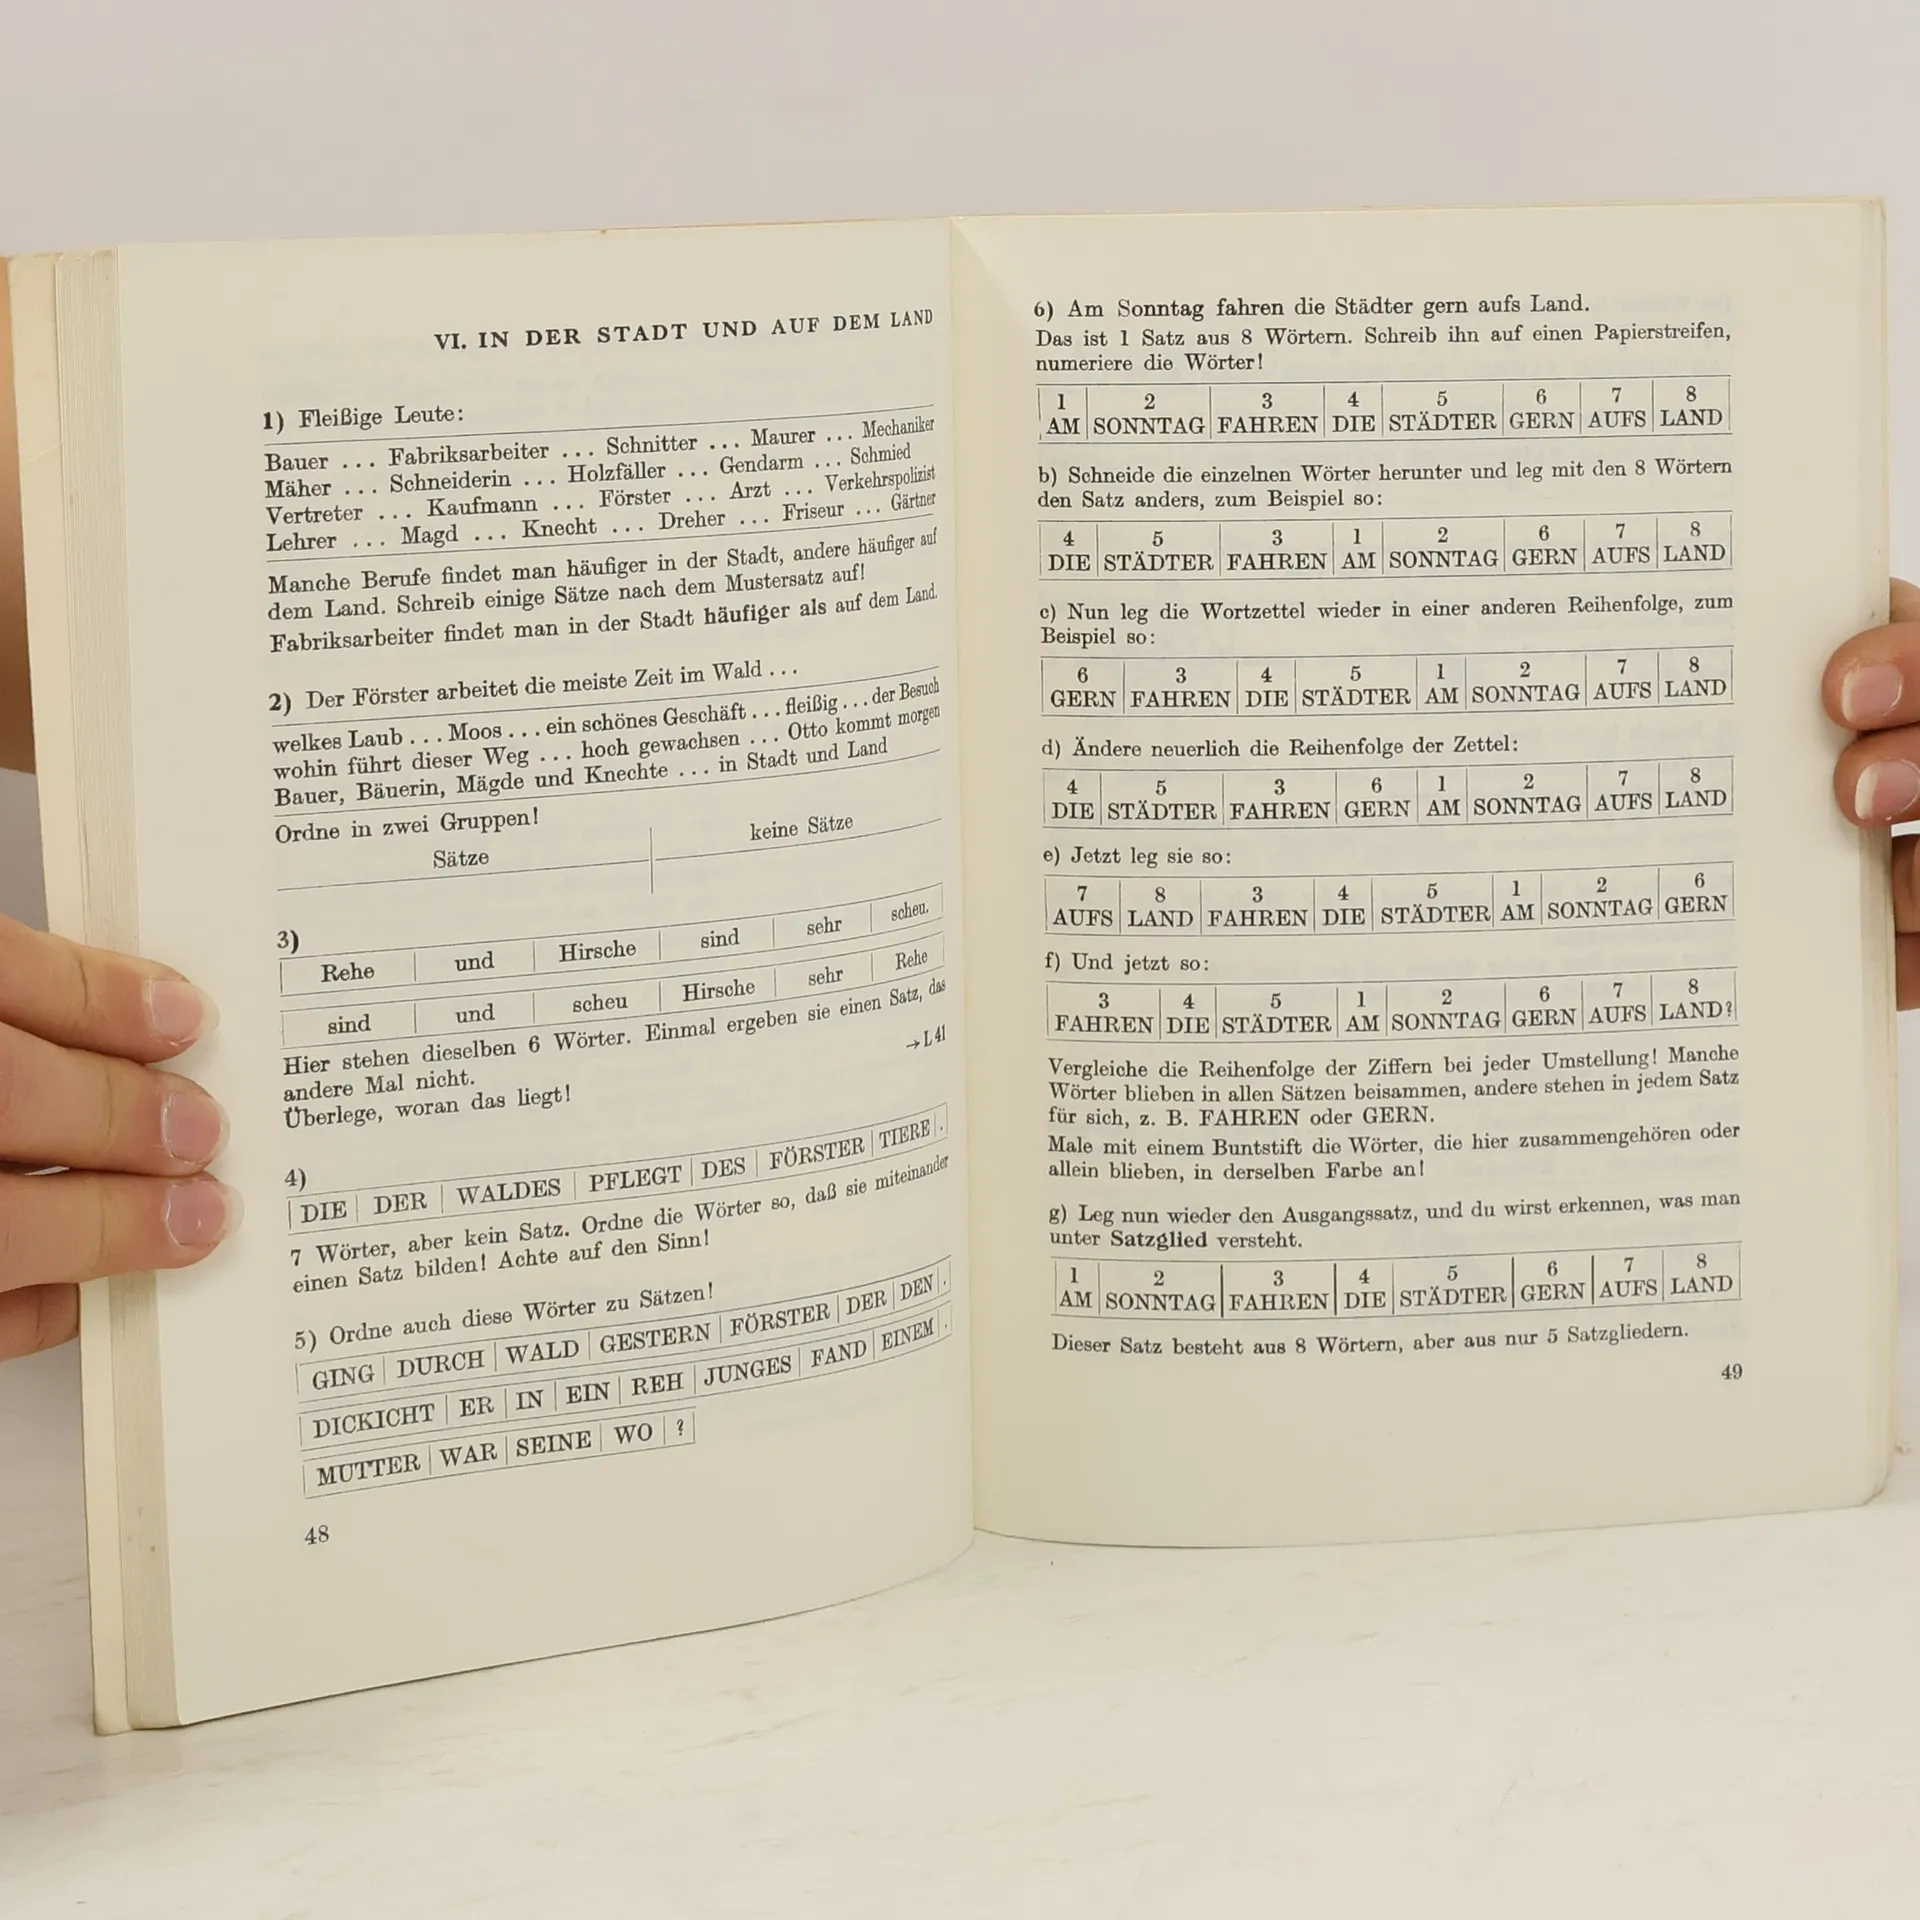 VI. IN DER STADT UND AUF DEM LAND
1) Fleißige Leute:
Bauer ... Fabriksarbeiter ... Schnitter ... Maurer ... Mechaniker
Mäher ... Schneiderin ... Holzfäller ... Gendarm ... Schmied
Vertreter ... Kaufmann ... Förster ... Arzt ... Verkehrspolizist
Lehrer ... Magd ... Knecht ... Dreher ... Friseur ... Gärtner
Manche Berufe findet man häufiger in der Stadt, andere häufiger auf
dem Land. Schreib einige Sätze nach dem Mustersatz auf!
Fabriksarbeiter findet man in der Stadt häufiger als auf dem Land.
2) Der Förster arbeitet die meiste Zeit im Wald ...
welkes Laub ... Moos ... ein schönes Geschäft ... fleißig ... der Besuch
wohin führt dieser Weg ... hoch gewachsen ... Otto kommt morgen
Bauer, Bäuerin, Mägde und Knechte ... in Stadt und Land
Ordne in zwei Gruppen!
Sätze keine Sätze
3)
Rehe und Hirsche sind sehr scheu.
sind und scheu Hirsche sehr Rehe
Hier stehen dieselben 6 Wörter. Einmal ergeben sie einen Satz, das
andere Mal nicht.
Überlege, woran das liegt! →L 41
4)
DIE DER WALDES PFLEGT DES FÖRSTER TIERE .
7 Wörter, aber kein Satz. Ordne die Wörter so, daß sie miteinander
einen Satz bilden! Achte auf den Sinn!
5) Ordne auch diese Wörter zu Sätzen!
GING DURCH WALD GESTERN FÖRSTER DER DEN .
DICKICHT ER IN EIN REH JUNGES FAND EINEM .
MUTTER WAR SEINE WO ?
48
6) Am Sonntag fahren die Städter gern aufs Land.
Das ist 1 Satz aus 8 Wörtern. Schreib ihn auf einen Papierstreifen,
numeriere die Wörter!
1 2 3 4 5 6 7 8
AM SONNTAG FAHREN DIE STÄDTER GERN AUFS LAND
b) Schneide die einzelnen Wörter herunter und leg mit den 8 Wörtern
den Satz anders, zum Beispiel so:
4 5 3 1 2 6 7 8
DIE STÄDTER FAHREN AM SONNTAG GERN AUFS LAND
c) Nun leg die Wortzettel wieder in einer anderen Reihenfolge, zum
Beispiel so:
6 3 4 5 1 2 7 8
GERN FAHREN DIE STÄDTER AM SONNTAG AUFS LAND
d) Ändere neuerlich die Reihenfolge der Zettel:
4 5 3 6 1 2 7 8
DIE STÄDTER FAHREN GERN AM SONNTAG AUFS LAND
e) Jetzt leg sie so:
7 8 3 4 5 1 2 6
AUFS LAND FAHREN DIE STÄDTER AM SONNTAG GERN
f) Und jetzt so:
3 4 5 1 2 6 7 8
FAHREN DIE STÄDTER AM SONNTAG GERN AUFS LAND?
Vergleiche die Reihenfolge der Ziffern bei jeder Umstellung! Manche
Wörter blieben in allen Sätzen beisammen, andere stehen in jedem Satz
für sich, z. B. FAHREN oder GERN.
Male mit einem Buntstift die Wörter, die hier zusammengehören oder
allein blieben, in derselben Farbe an!
g) Leg nun wieder den Ausgangssatz, und du wirst erkennen, was man
unter Satzglied versteht.
1 2 3 4 5 6 7 8
AM SONNTAG FAHREN DIE STÄDTER GERN AUFS LAND
Dieser Satz besteht aus 8 Wörtern, aber aus nur 5 Satzgliedern.
49